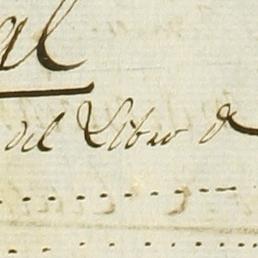 al
del Libro de